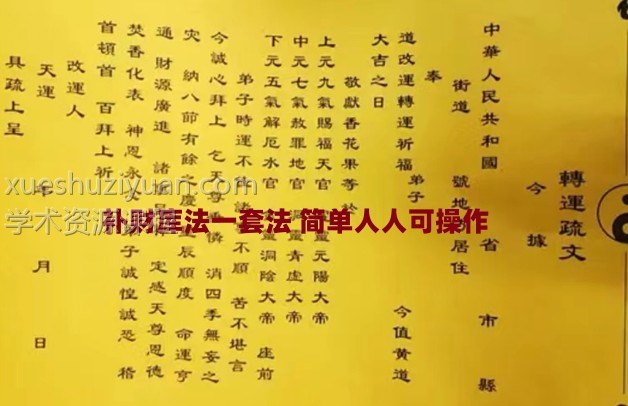 轉運疏文
今據
中華人民共和國 省 市 縣
街道 號地 居住
奉
道改運轉運祈福 弟子 今值黄道
大吉之日
敬獻香花果等於
上元九氣賜福天官 靈元陽大帝
中元七氣赦罪地官 靈青虛大帝
下元五氣解厄水官 靈洞陰大帝 座前
弟子時運不 諸 不順 苦不堪言
今誠心拜上 乞天尊 憐 消四季無妄之
灾 納八節有餘之慶 辰順度 命運亨
通 財源廣進 諸 定感天尊恩德
焚香化表 神恩永 子誠惶誠恐 稽
首頓首 百拜上祈
改運人
天運 年 月 日
具疏上呈
xueshuziyuan.com
学术资源
补财库法一套法 简单人人可操作